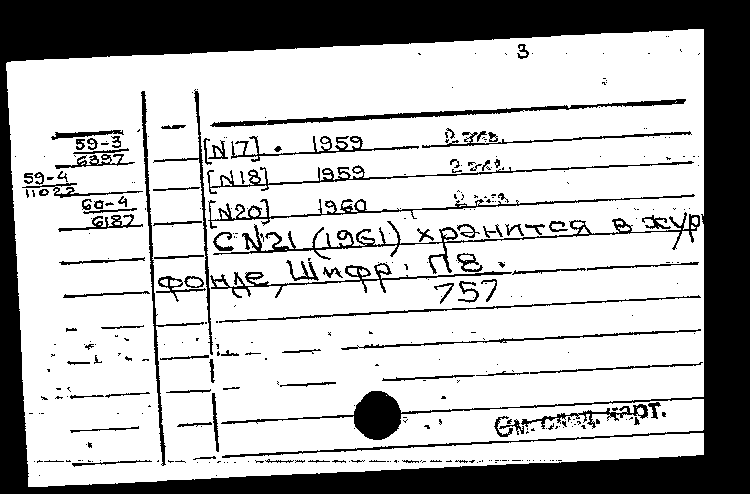 3
59-3
6397 [N17] . 1959 2 экз.
59-4
11022 [N18] 1959 2 экз.
60-4
6187 [N20] 1960 2 экз.
С N21 (1961) хранится в жур
фонде, Шифр: П8.
757
См. след. карт.